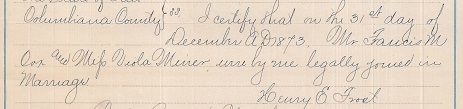 Columbiana County SS, I certify that on the 31st day of
December A.D. 1873. Mr Francis M
Cox and Miss Viola Miner were by me legally joined in
Marriage
Henry E Frost